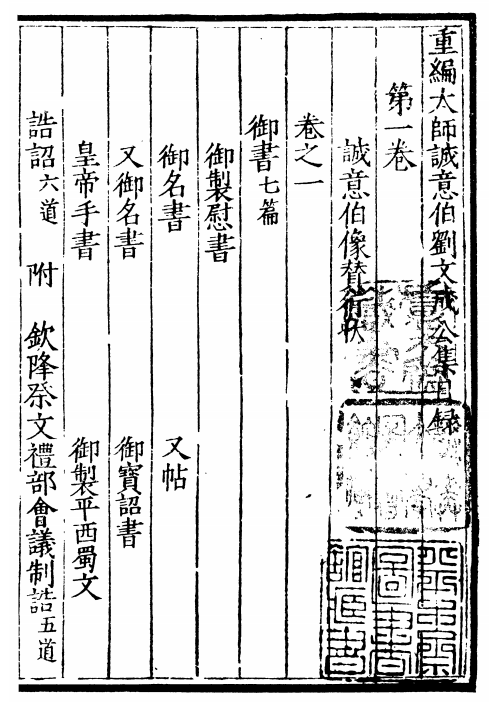 重編太師誠意伯劉文成公集目録
第一卷
誠意伯像賛 行狀
卷之一
御書七篇
御製慰書
御名書 又帖
又御名書 御寶詔書
皇帝手書 御製平西蜀文
誥詔六道 附 欽降祭文禮部會議制誥五道